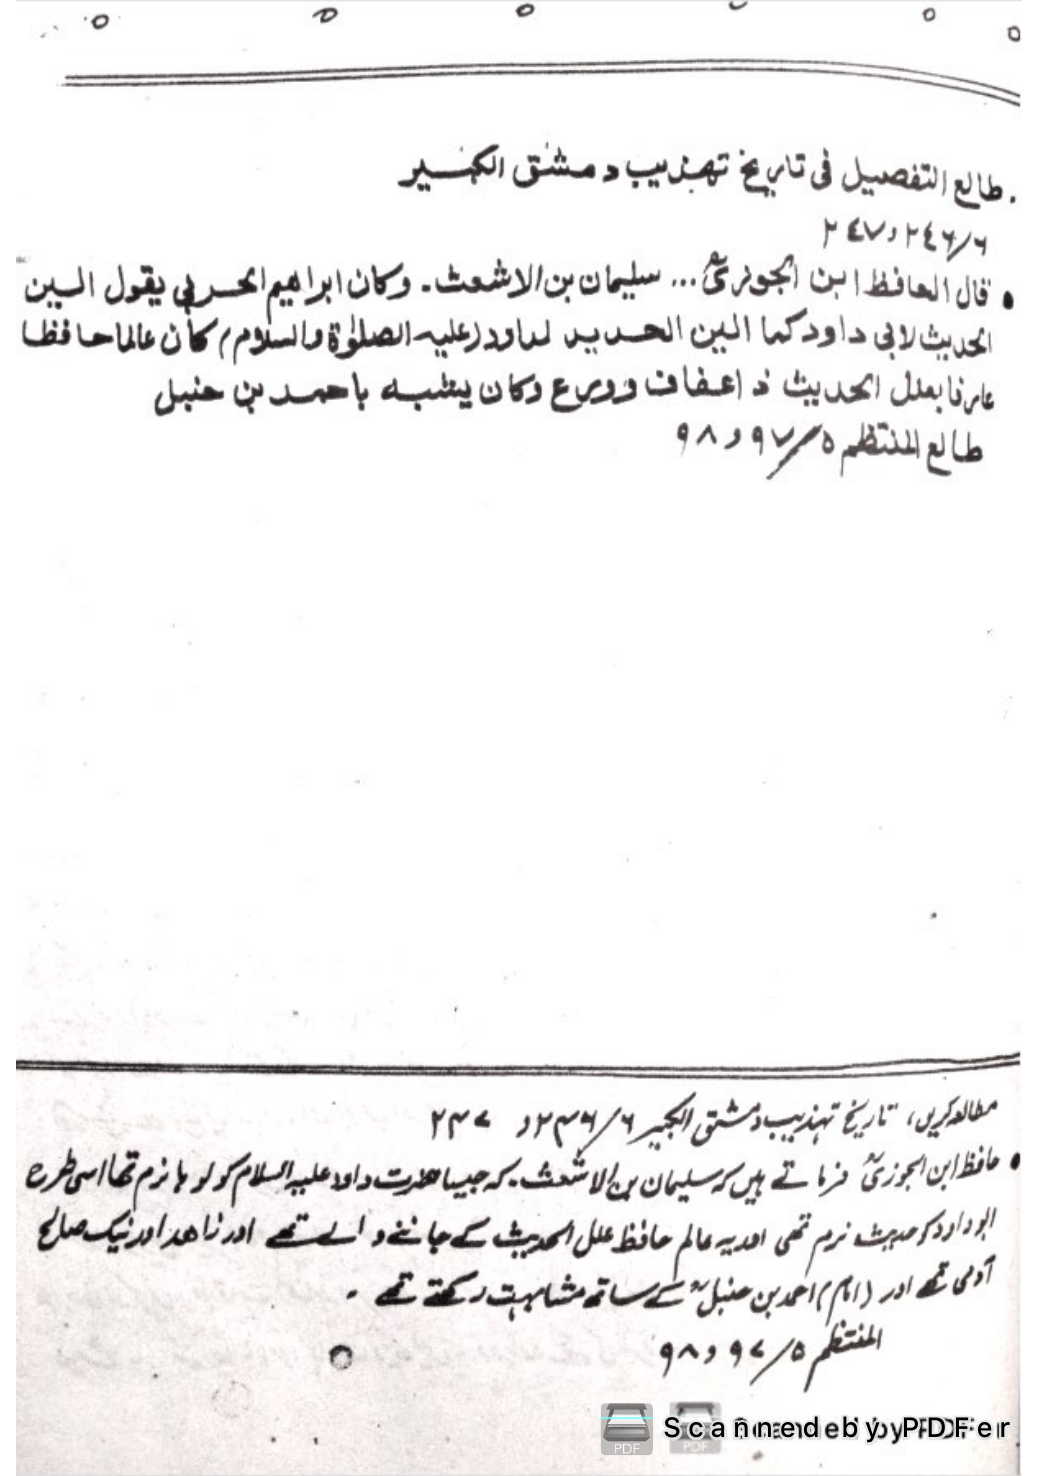 . طالع التفصيل فى تاريخ تهذيب دمشق الكبير
٢٤٦/٦ و ٢٤٧
• قال الحافظ ابن الجوزيؒ ... سليمان بن الاشعث . وكان ابراهيم الحربي يقول الين
الحديث لابى داود كما الين الحديد لداود (عليه الصلوٰة والسلام) كان عالما حافظا
عارفا بعلل الحديث ذ اعفاف وورع وكان يشبه باحمد بن حنبل
طالع المنتظم ٩٧/٥ و ٩٨
مطالعہ کریں، تاریخ تہذیب دمشق الکبیر ٢٤٦/٦ و ٢٤٧
• حافظ ابن الجوزیؒ فرماتے ہیں کہ سلیمان بن الاشعث . کہ جیسا حضرت داود علیہ السلام کو لوہا نرم تھا اسی طرح
ابوداود کو حدیث نرم تھی اور یہ عالم حافظ علل الحدیث کے جاننے والے تھے اور زاھد اور نیک صالح
آدمی تھے اور (امام) احمد بن حنبلؒ کے ساتھ مشابہت رکھتے تھے ۔
المنتظم ٩٧/٥ و ٩٨
Scanned by PDFer